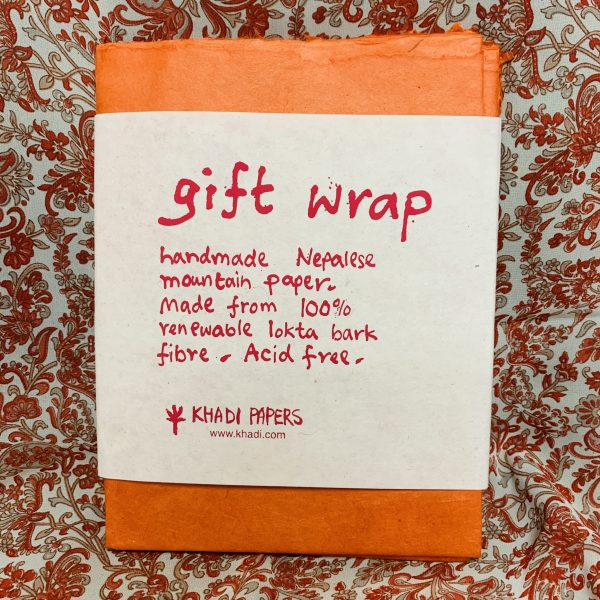 gift wrap
handmade Nepalese
mountain paper.
Made from 100%
renewable lokta bark
fibre. Acid free.
KHADI PAPERS
www.khadi.com